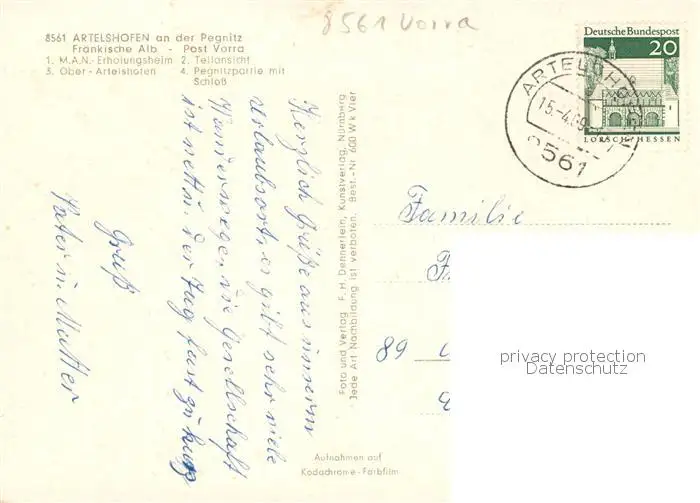 8561 Vorra
8561 ARTELSHOFEN an der Pegnitz
Fränkische Alb - Post Vorra
1. M.A.N.-Erholungsheim 2. Teilansicht
3. Ober-Artelshofen 4. Pegnitzpartie mit
Schloß
Herzlich Grüße aus unserm
Urlaubsort, es gibt sehr viele
Wanderwege, die Gesellschaft
ist nett u. der Zug fast zu kurz
Gruß
Vater u. Mutter
Foto und Verlag F. H. Dennerlein, Kunstverlag, Nürnberg
Jede Art Nachbildung ist verboten. Best.-Nr 600 Wk Vier
Aufnahmen auf
Kodachrome-Farbfilm
Deutsche Bundespost
20
LORSCH/HESSEN
15.-4.69
8561
Familie
89
privacy protection
Datenschutz